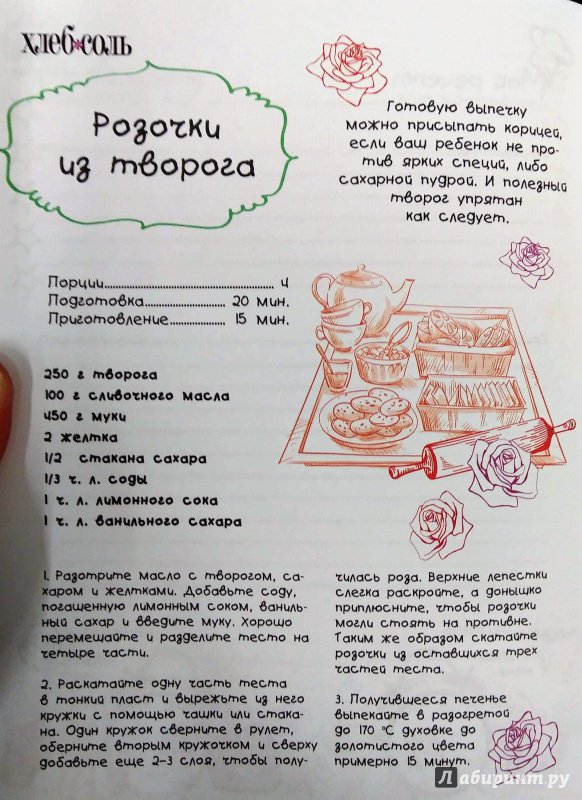 хлеб*соль
Розочки
из творога
Готовую выпечку
можно присыпать корицей,
если ваш ребенок не про-
тив ярких специй, либо
сахарной пудрой. И полезный
творог упрятан
как следует.
Порции............................................ 4
Подготовка..................... 20 мин.
Приготовление.............. 15 мин.
250 г творога
100 г сливочного масла
450 г муки
2 желтка
1/2 стакана сахара
1/3 ч. л. соды
1 ч. л. лимонного сока
1 ч. л. ванильного сахара
1. Разотрите масло с творогом, са-
харом и желтками. Добавьте соду,
погашенную лимонным соком, ваниль-
ный сахар и введите муку. Хорошо
перемешайте и разделите тесто на
четыре части.
2. Раскатайте одну часть теста
в тонкий пласт и вырежьте из него
кружки с помощью чашки или стака-
на. Один кружок сверните в рулет,
оберните вторым кружочком и сверху
добавьте еще 2–3 слоя, чтобы полу-
чилась роза. Верхние лепестки
слегка раскройте, а донышко
приплюсните, чтобы розочки
могли стоять на противне.
Таким же образом скатайте
розочки из оставшихся трех
частей теста.
3. Получившееся печенье
выпекайте в разогретой
до 170 °С духовке до
золотистого цвета
примерно 15 минут.
Лабиринт.ру